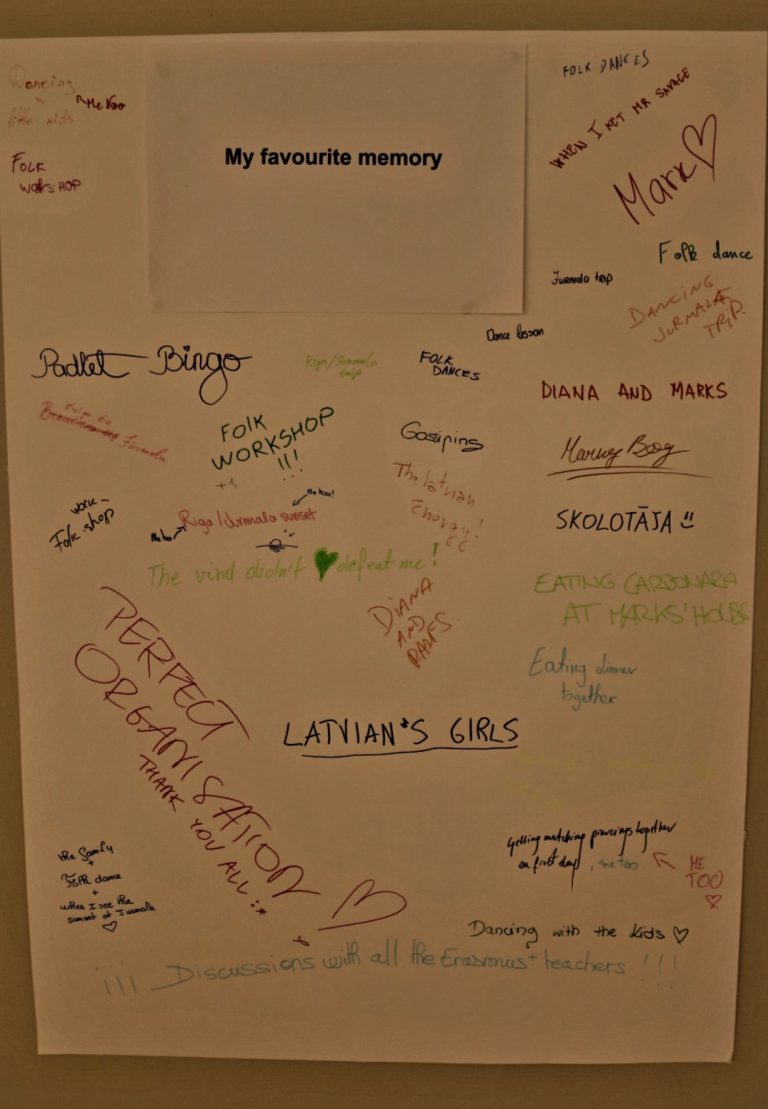 Dancing
kids
Me too
FOLK
WORKSHOP
My favourite memory
FOLK DANCES
WHEN I MET MR SAVAGE
Mark
Folk dance
Jurmala trip
DANCING
JURMALA
TRIP.
Dance lesson
Padlet Bingo
Riga/Jurmala
trip
FOLK
DANCES
DIANA AND MARKS
trip to
Jurmala
FOLK
WORKSHOP
!!!
+1
Gossiping
The latvian
Energy!
work-
Folk shop
me too!
Me too
Riga/Jurmala sunset
SKOLOTĀJA
The vind didn't defeat me!
EATING CARBONARA
AT MARKS' HOUSE
DIANA
AND
RALFS
PERFECT
ORGANISATION
THANK YOU ALL :*
Eating dinner
together
LATVIAN'S GIRLS
the family
+
Folk dance
+
when I see the
sunset at Jurmala
Getting matching piercings together
on first day, me too
ME
TOO
Dancing with the kids
¡¡¡ Discussions with all the Erasmus+ teachers !!!